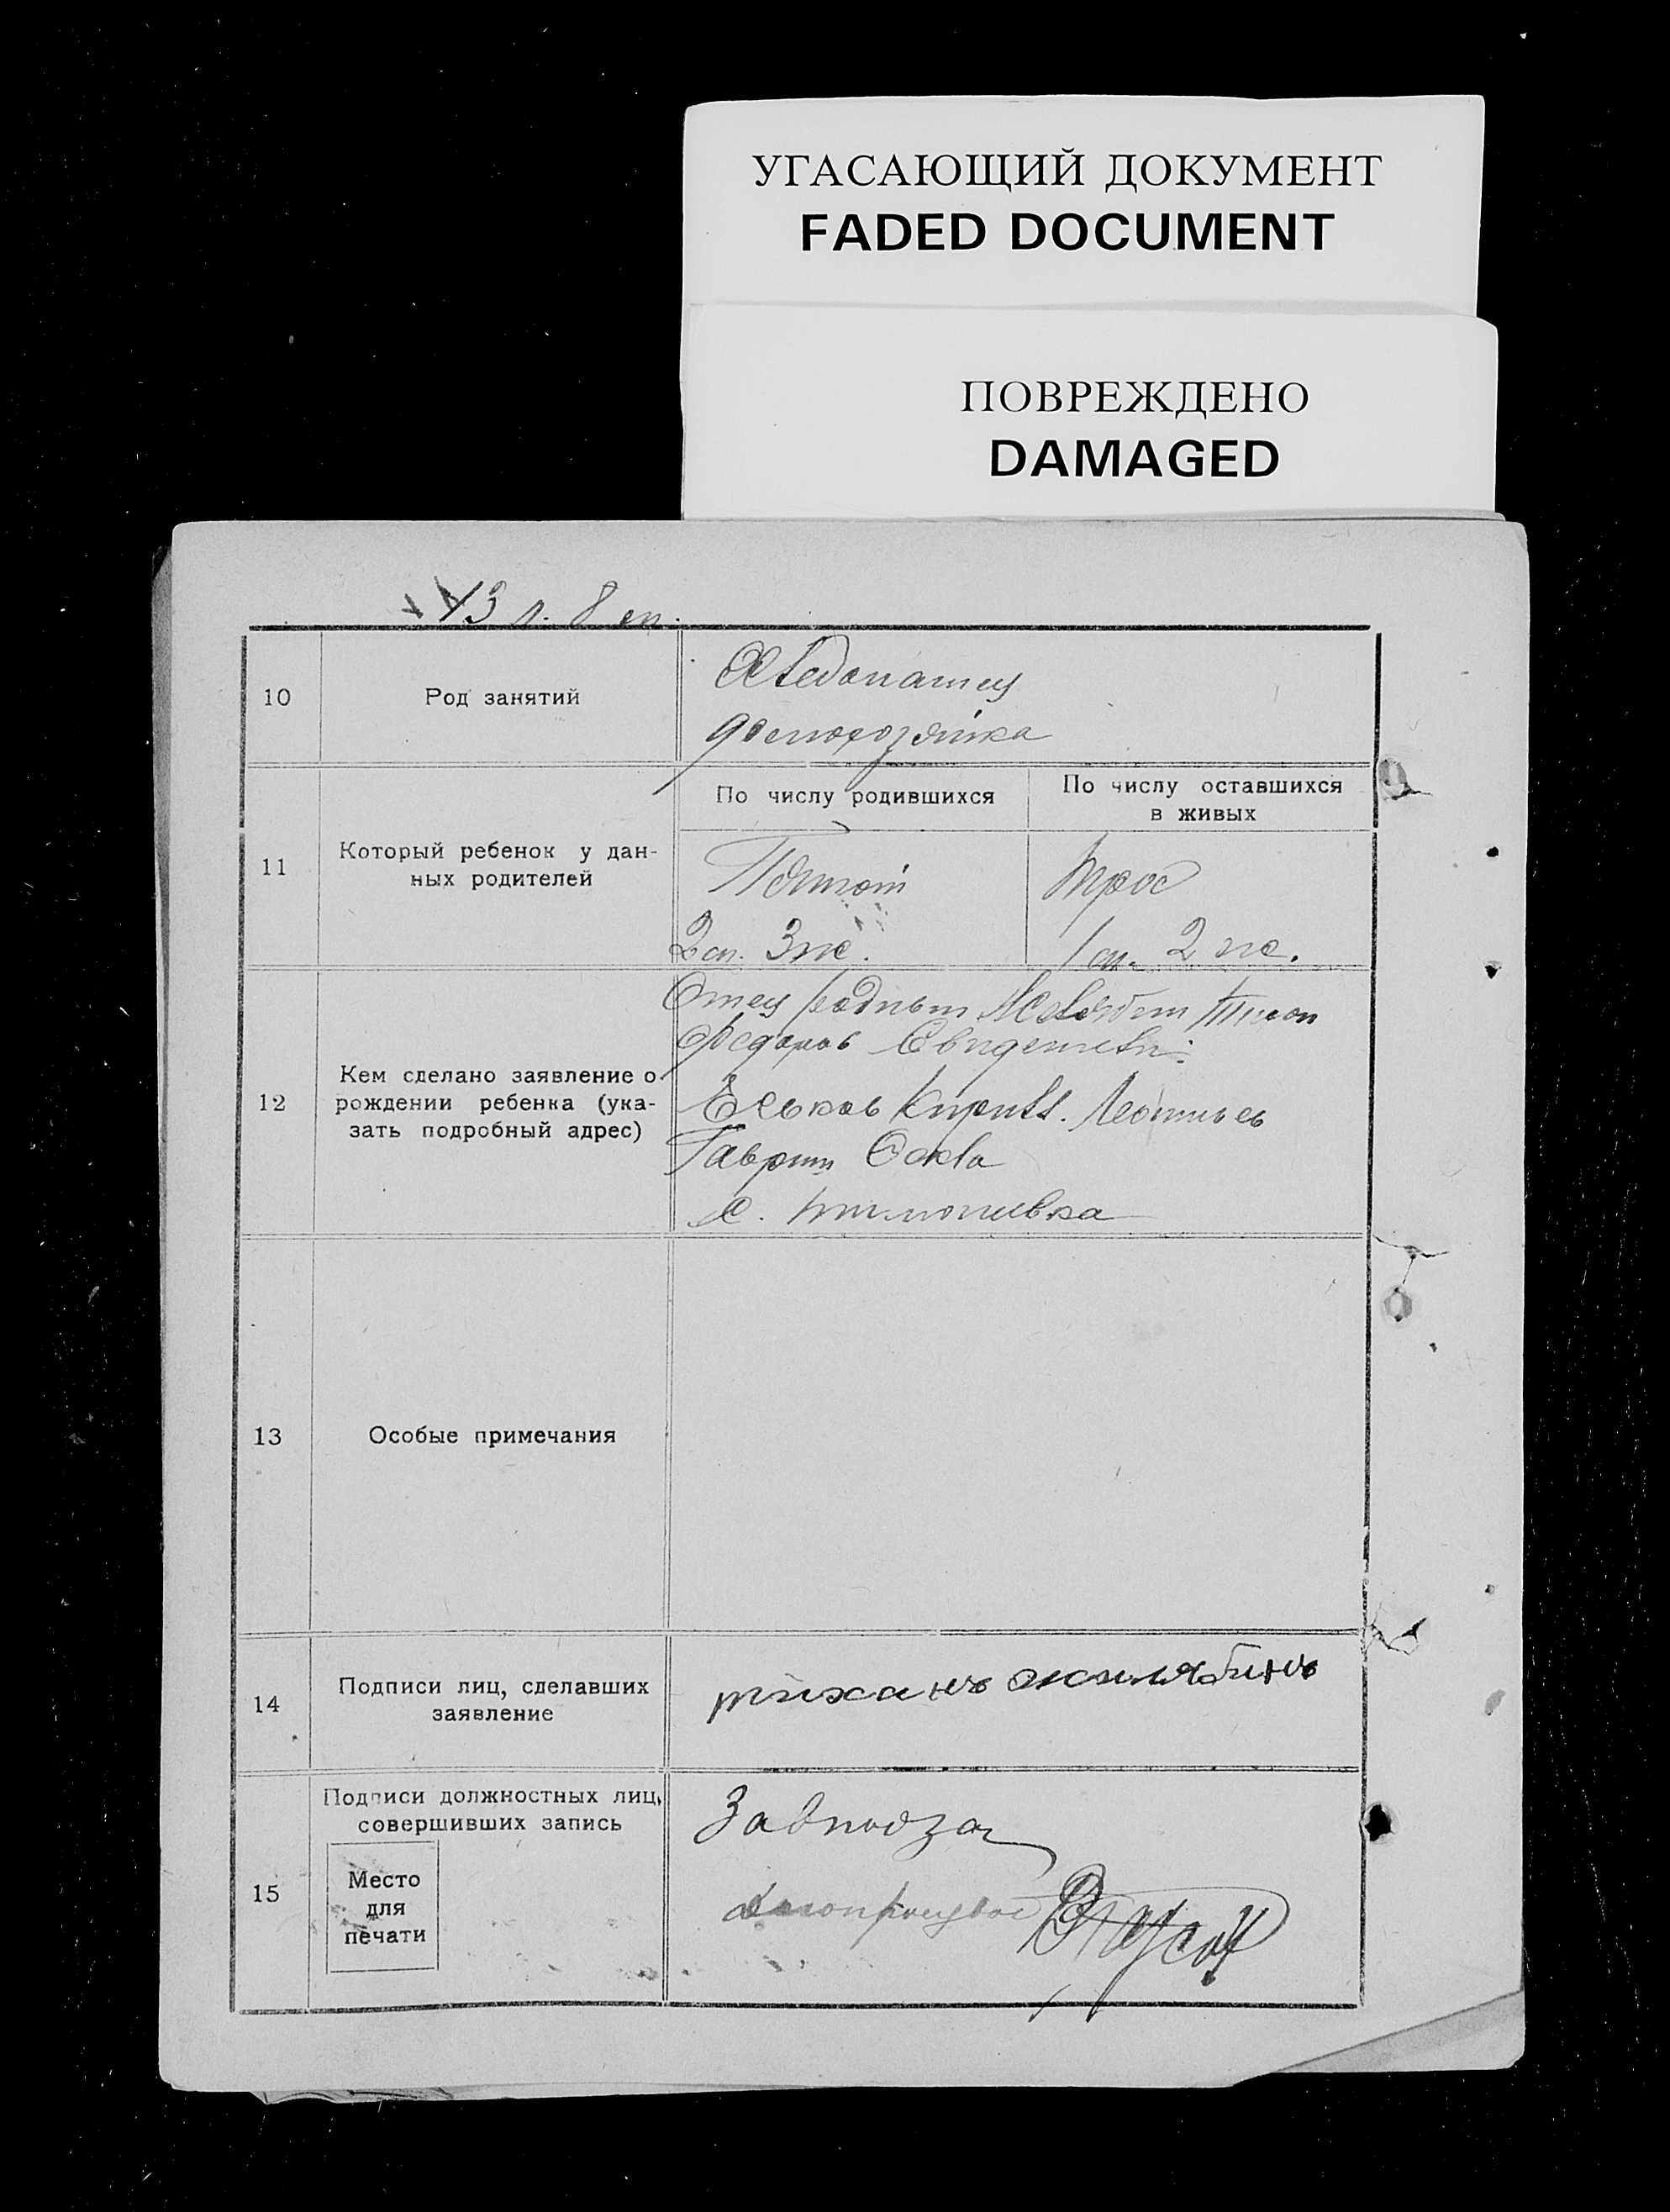 УГАСАЮЩИЙ ДОКУМЕНТ
FADED DOCUMENT
ПОВРЕЖДЕНО
DAMAGED
10
Род занятий
Хлебопашец
домохозяйка
11
Который ребенок у дан-
ных родителей
По числу родившихся
По числу оставшихся
в живых
Пятой
трое
2 м. 3 ж.
1 м. 2 ж.
12
Кем сделано заявление о
рождении ребенка (ука-
зать подробный адрес)
Отец родным Тихон
Федоров Свидетели:
Еськов Кирилл. Леонтьев
Гаврил
с. Тимошевка
13
Особые примечания
14
Подписи лиц, сделавших
заявление
тиханъ
15
Подписи должностных лиц,
совершивших запись
Место
для
печати
Завподзаг